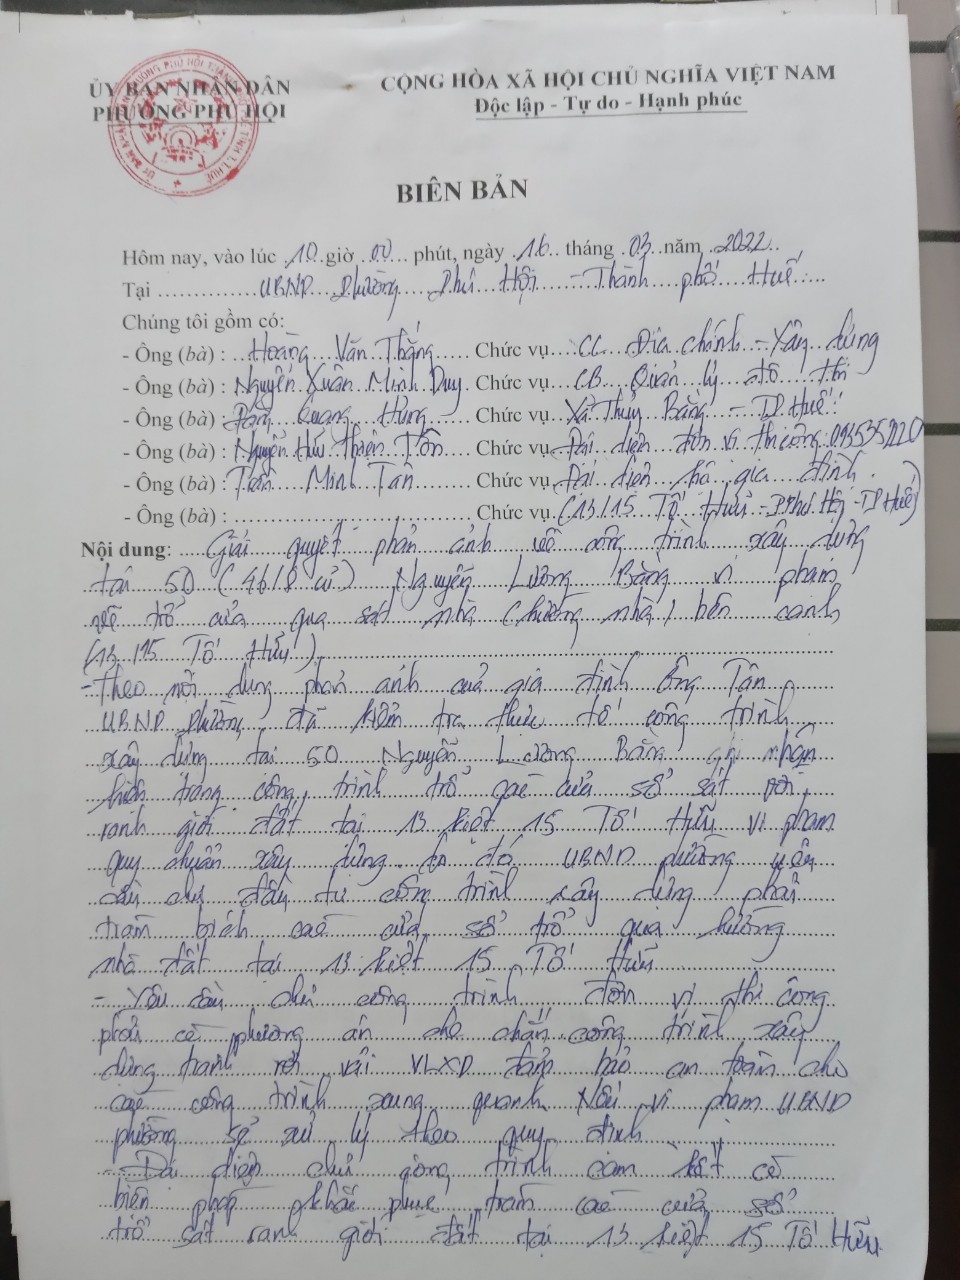 ỦY BAN NHÂN DÂN
PHƯỜNG PHÚ HỘI
CỘNG HÒA XÃ HỘI CHỦ NGHĨA VIỆT NAM
Độc lập - Tự do - Hạnh phúc
BIÊN BẢN
Hôm nay, vào lúc 10 giờ 00 phút, ngày 16 tháng 03 năm 2022
Tại UBND Phường Phú Hội - Thành phố Huế
Chúng tôi gồm có:
- Ông (bà) : Hoàng Văn Thắng Chức vụ CC Địa chính - Xây dựng
- Ông (bà) : Nguyễn Xuân Minh Duy Chức vụ CB Quản lý đô thị
- Ông (bà) : Đặng Quang Hùng Chức vụ Xã Thủy Bằng - TP Huế
- Ông (bà) : Nguyễn Hữu Thiện Tôn Chức vụ Đại diện đơn vị thi công
- Ông (bà) : Trần Minh Tân Chức vụ Đại diện hộ gia đình
- Ông (bà) : Chức vụ (13/15 Tố Hữu - P. Phú Hội - TP Huế)
Nội dung: Giải quyết phản ánh về công trình xây dựng
tại 50 (46/8 cũ) Nguyễn Lương Bằng vi phạm
về trổ cửa qua sát nhà (hướng nhà) bên cạnh
(13/15 Tố Hữu)
- Theo nội dung phản ánh của gia đình Ông Tân
UBND phường đã kiểm tra thực tế công trình
xây dựng tại 50 Nguyễn Lương Bằng ghi nhận
hiện trạng công trình trổ các cửa sổ sát với
ranh giới đất tại 13 kiệt 15 Tố Hữu vi phạm
quy chuẩn xây dựng do đó UBND phường yêu
cầu chủ đầu tư công trình xây dựng phải
trám bích các cửa sổ trổ qua hướng
nhà đất tại 13 kiệt 15 Tố Hữu
- Yêu cầu chủ công trình đơn vị thi công
phải có phương án che chắn công trình xây
dựng tránh rơi vãi VLXD đảm bảo an toàn cho
các công trình xung quanh Nếu vi phạm UBND
phường sẽ xử lý theo quy định
- Đại diện chủ công trình cam kết có
biện pháp khắc phục trám các cửa sổ
trổ sát ranh giới đất tại 13 kiệt 15 Tố Hữu